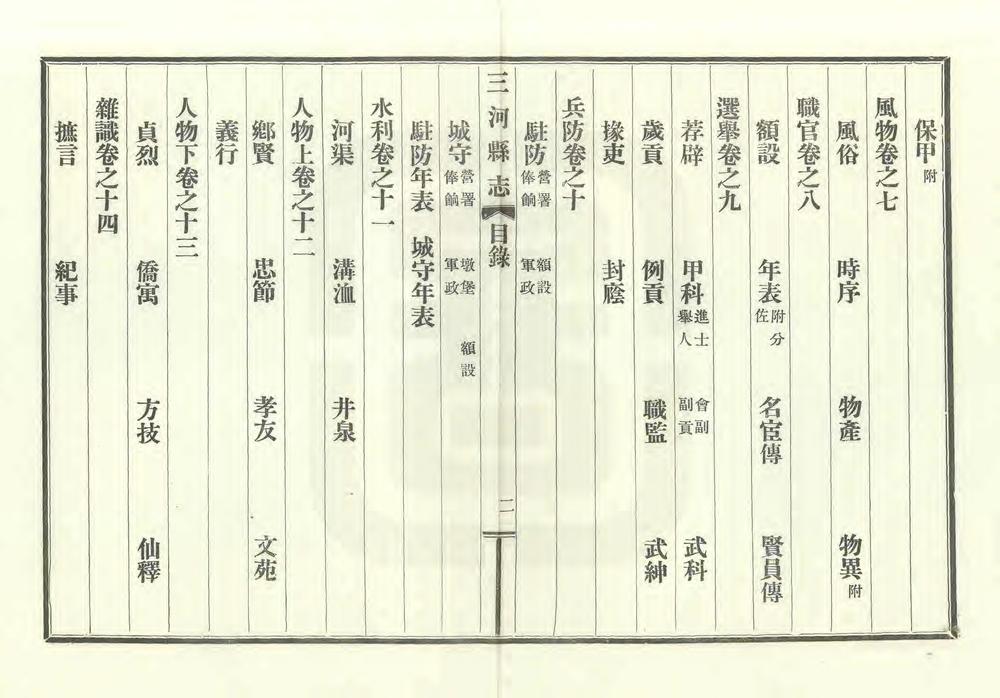 保甲附
風物卷之七
風俗 時序 物產 物異附
職官卷之八
額設 年表附分佐 名宦傳 賢員傳
選舉卷之九
荐辟 甲科進士舉人 會副副貢 武科
歲貢 例貢 職監 武紳
掾吏 封廕
兵防卷之十
駐防營署俸餉 額設軍政
三河縣志 目錄 二
城守營署俸餉 墩堡軍政 額設
駐防年表 城守年表
水利卷之十一
河渠 溝洫 井泉
人物上卷之十二
鄉賢 忠節 孝友 文苑
義行
人物下卷之十三
貞烈 僑寓 方技 仙釋
雜識卷之十四
摭言 紀事